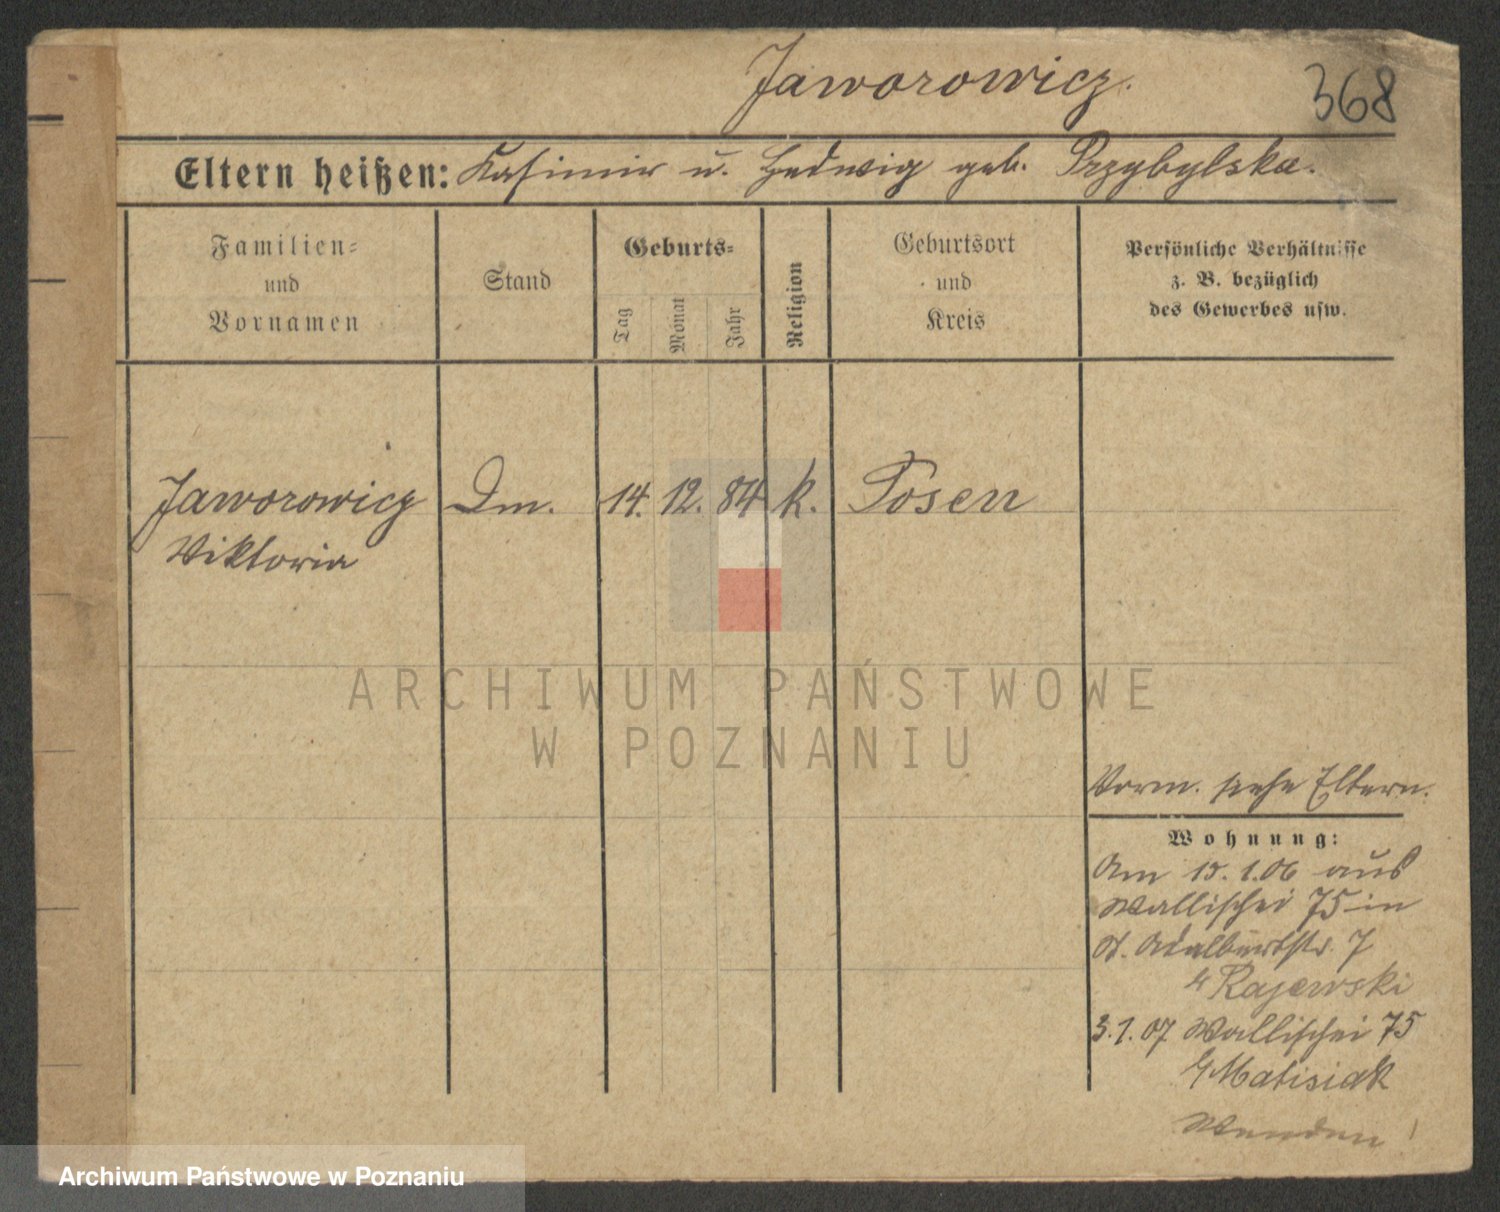 Jaworowicz.
368
Eltern heißen: Kasimir u. Hedwig geb. Przybylska.
Familien-
und
Vornamen
Stand
Geburts-
Tag
Monat
Jahr
Religion
Geburtsort
und
Kreis
Persönliche Verhältnisse
z. B. bezüglich
des Gewerbes usw.
Jaworowicz Dm. 14. 12. 84 k. Posen
Viktoria
ARCHIWUM PAŃSTWOWE
W POZNANIU
Vorm. siehe Eltern.
Wohnung:
Am 15.1.06 aus
Wallischei 75 in
St. Adalbertstr. 7
b/ Rajewski
3.1.07 Wallischei 75
b/ Matisiak
Wenden!
Archiwum Państwowe w Poznaniu